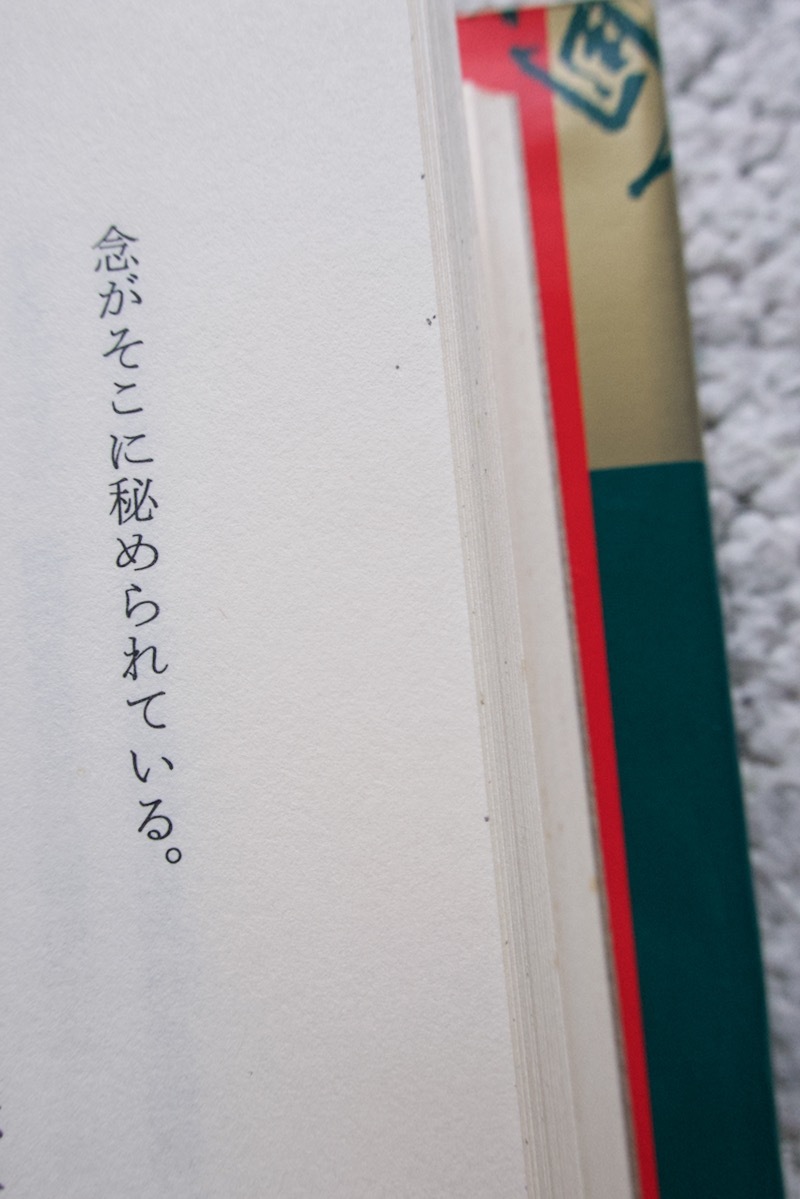 念がそこに秘められている。